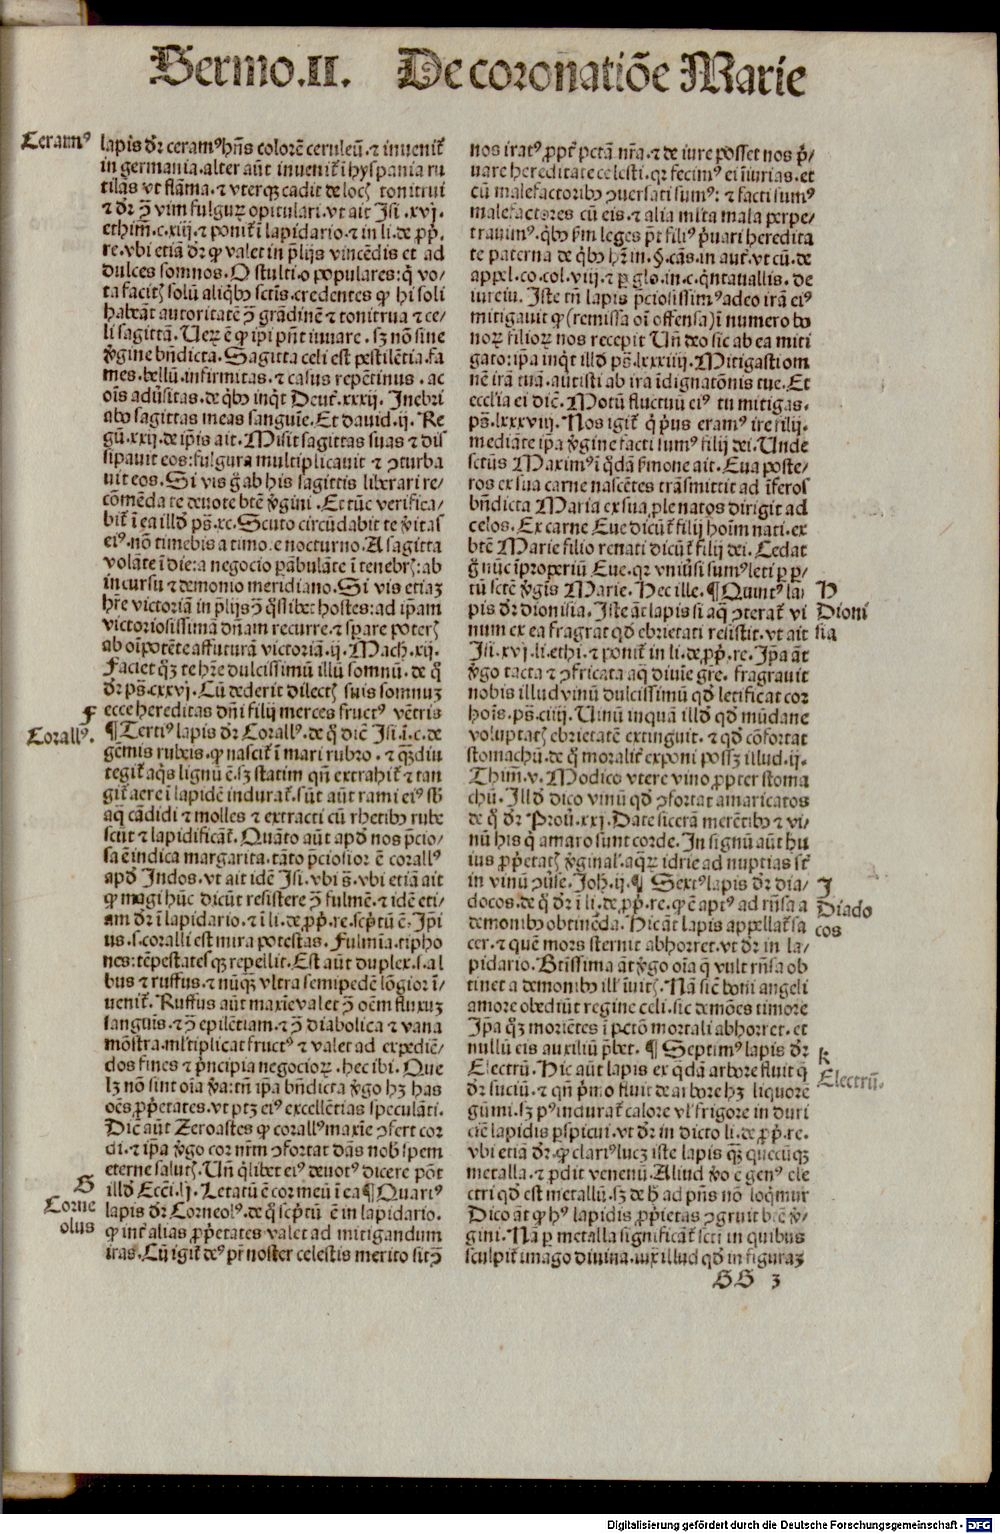 Sermo.II. De coronatiõe Marie
Ceramꝰ
lapis dr̃ ceramꝰ hñs colorẽ ceruleũ. ⁊ inuenit᷑
in germania. alter aũt inuenit᷑ ĩ hyspania ru
tilãs vt flãma. ⁊ vterqꝫ cadit de locꝭ tonitrui
⁊ dr̃ ꝯ̃ vim fulgurꝝ opitulari. vt ait Isi. xvj.
ethim̃. c. xiij. ⁊ ponit᷑ ĩ lapidario. ⁊ in li. de ꝓp̃.
re. vbi etiã dr̃ ꝙ valet in p̃lijs vincẽdis et ad
dulces somnos. O stulti. o populares: q̃ vo⸗
ta facitꝭ solũ aliqͥbꝰ sctĩs. credentes ꝙ hi soli
habeãt autoritatẽ ꝯ̃ grãdinẽ ⁊ tonitrua ⁊ ce⸗
li sagittã. Uerꝝ ẽ ꝙ ipi pñt iuuare. sꝫ nõ sine
v̓gine bñdicta. Sagitta celi est pestilẽtia. fa
mes. bellũ. infirmitas. ⁊ casus repẽtinus. ac
oĩs adũsitas. de qͥbꝰ inqͥt Deut᷑. xxxij. Inebri
abo sagittas meas sanguĩe. Et dauid. ij. Re
gũ. xxij. de ip̃is ait. Misit sagittas suas ⁊ dis
sipauit eos: fulgura multiplicauit ⁊ ꝯturba
uit eos. Si vis g̊ ab his sagittis liberari re⸗
cõmẽda te deuote btẽ v̓gini. Et tũc verifica⸗
bit᷑ ĩ ea illd̃ ps̃. xc. Scuto circũdabit te v̓itas
eiꝰ. nõ timebis a timoꝛe nocturno. A sagitta
volãte ĩ die: a negocio ꝑãbulãte ĩ tenebrꝭ: ab
incursu ⁊ demonio meridiano. Si vis etiaꝫ
hr̃e victoriã in p̃lijs ꝯ̃ qͦslibet hostes: ad ip̃am
victoriosissimã dñam recurre. ⁊ sꝑare poterꝭ
ab oĩpotẽte affuturã victoriam. ij. Mach. xij.
Faciet qͦꝫ te hr̃e dulcissimũ illũ somnũ. de qͦ
dr̃ ps̃. cxxvj. Cũ dederit dilectꝭ suis somnuꝫ
F
ecce hereditas dñi filij merces fructꝰ vẽtris
Corallꝰ.
¶ Tertiꝰ lapis dr̃ Corallꝰ. de qͦ diẽ Isi. i. c. de
gẽmis rubeis. ꝙ nascit᷑ ĩ mari rubro. ⁊ qͣꝫdiu
tegit᷑ aqͥs lignũ ẽ. sꝫ statim qñ extrahit᷑ ⁊ tan
git᷑ aere ĩ lapidẽ indurat᷑. sũt aũt rami eiꝰ sb̃
aqͣ cãdidi ⁊ molles ⁊ extracti cũ rhetibꝰ rube
scũt ⁊ lapidificãt᷑. Quãto aũt apd̃ nos p̃cio⸗
sa ẽ indica margarita. tãto p̃ciosior ẽ corallꝰ
apd̃ Indos. vt ait idẽ Isi. vbi s̃. vbi etiã ait
ꝙ magi hũc dicũt resistere ꝯ̃ fulmẽ. ⁊ idẽ eti⸗
am dr̃ ĩ lapidario. ⁊ ĩ li. de ꝓp̃. re. scp̃tũ ẽ. Ip̃i
us. s. coralli est mira potestas. Fulmĩa. tipho
nes: tẽpestatesqꝫ repellit. Est aũt duplex. s. al
bus ⁊ ruffus. ⁊ nũqͣꝫ vltra semipedẽ lõgior ĩ⸗
uenit᷑. Ruffus aũt maxĩe valet ꝯ̃ oẽm fluxuꝫ
sanguĩs. ⁊ ꝯ̃ epilẽtiam. ⁊ ꝯ̃ diabolica ⁊ vana
mõstra. ml̃tiplicat fructꝰ ⁊ valet ad expediẽ⸗
dos fines ⁊ p̃ncipia negociorꝝ. hec ibi. Que
lꝫ nõ sint oĩa v̓a: tñ ip̃a bñdicta v̓go hꝫ has
oẽs ꝓp̃etates. vt ptꝫ eiꝰ excellẽtias speculãti.
Diẽ aũt Zeroastes ꝙ corallꝰ maxĩe ꝯfert cor
di. ⁊ ip̃a v̓go cor nr̃m ꝯfortat dãs nob̃ spem
eterne salutꝭ. Uñ qͥlibet eiꝰ deuotꝰ dicere põt
G
illd̃ Ecci. lj. Letatũ ẽ cor meũ ĩ ea ¶ Quartꝰ
Corne
olus
lapis dr̃ Corneolꝰ. de qͦ scp̃tũ ẽ in lapidario.
ꝙ int᷑ alias ꝓp̃etates valet ad mitigandum
iras. Cũ igit᷑ deꝰ pr̃ noster celestis merito sit ꝯ̃
nos iratꝰ ꝓpt᷑ pctã nr̃a. ⁊ de iure posset nos p̃⸗
uare hereditate celesti. qꝛ fecimꝰ ei ĩiurias. et
cũ malefactoribꝰ ꝯuersati sumꝰ: ⁊ facti sumꝰ
malefactores cũ eis. ⁊ alia ml̃ta mala perpe⸗
trauimꝰ. qͥbꝰ ẜm leges p̃t filiꝰ p̃uari heredita
te paterna de qͥbꝰ hr̃ in. §. cãs. in aut᷑. vt cũ. de
appel. co. col. viij. ⁊ ꝑ glo. in. c. qͥntauallis. de
iureiu. Iste tñ lapis p̃ciosissimꝰ adeo irã eiꝰ
mitigauit ꝙ (remissa oĩ offensa) ĩ numero bo
norꝝ filiorꝝ nos recepit Uñ deo sic ab ea miti
gato: ip̃a inqͥt illd̃ ps̃. lxxxiiij. Mitigasti om
nẽ irã tuã. auertisti ab ira ĩdignatõnis tue. Et
ecclia ei diẽ. Motũ fluctuũ eiꝰ tu mitigas.
ps̃. lxxxviij. Nos igit᷑ qͥ pͥus eramꝰ ire filij.
mediãte ip̃a v̓gine facti sumꝰ filij dei. Unde
sctũs Maximꝰ ĩ qͦdã ẜmone ait. Eua poste⸗
ros ex sua carne nascẽtes trãsmittit ad ĩferos
bñdicta Maria ex sua ꝓle natos dirigit ad
celos. Ex carne Eue dicũt᷑ filij hoĩm nati. ex
btẽ Marie filio renati dicũt᷑ filij dei. Cedat
g̊ nũc ĩproperiũ Eue. qꝛ vniũsi sumꝰ leti ꝑ ꝑ⸗
tũ sctẽ v̓gĩs Marie. Hec ille. ¶ Quintꝰ la⸗
H
Dioni
sia
pis dr̃ dionisia. Iste ãt lapis si aqͣ ꝯterat᷑ vi
num ex ea fragrat qd̃ ebrietati resistit. vt ait
Isi. xvj. li. ethi. ⁊ ponit᷑ in li. de ꝓp̃. re. Ip̃a ãt
v̓go tacta ⁊ ꝯfricata aqͣ diuĩe gr̃e. fragrauit
nobis illud vinũ dulcissimũ qd̃ letificat cor
hoĩs. ps̃. ciiij. Uinũ inquã illd̃ qd̃ mũdane
voluptatꝭ ebrietatẽ extinguit. ⁊ qd̃ cõfortat
stomachũ. de qͦ moralit᷑ exponi possꝫ illud. ij.
Thim̃. v. Modico vtere vino ꝓpter stoma
chũ. Illd̃ dico vinũ qd̃ ꝯfortat amaricatos
de qͦ dr̃ Prou̓. xxj. Date sicerã merẽtibꝰ ⁊ vi⸗
nũ his qͥ amaro sunt corde. In signũ aũt hu
ius ꝓp̃etatꝭ v̓ginalꝭ. aqͣrꝝ idrie ad nuptias st᷑
I
in vinũ ꝯuerse. Joh. ij. ¶ Sextꝰ lapis dr̃ dia⸗
Diado
cos
docos. de qͦ dr̃ ĩ li. de ꝓp̃. re. ꝙ ẽ aptꝰ ad rñsa a
demonibꝰ obtinẽda. Hic ãt lapis appellat᷑ sa
cer. ⁊ quẽ mors sternit abhorret. vt dr̃ in la⸗
pidario. Btĩssima ãt v̓go oĩa q̃ vult rñsa ob
tinet a demonibꝰ illꝭ ĩuitꝭ. Nã sic̃ boni angeli
amore obediũt regine celi. sic demões timore
Ip̃a qͦꝫ moriẽtes ĩ pctõ mortali abhorret. et
nullũ eis auxiliũ p̃bet. ¶ Septimꝰ lapis dr̃
K
Electrũ.
Electrũ. Hic aũt lapis ex qͣdã arbore fluit q̃
dr̃ suciũ. ⁊ qñ p̃mo fluit de arbore hꝫ liquorẽ
gũmi. sꝫ pꝰ indurat᷑ calore vl̓ frigore in duri
ciẽ lapidis ꝑspicui. vt dr̃ in dicto li. de ꝓp̃. re.
vbi etiã dr̃. ꝙ clariꝰ lucꝫ iste lapis qͣꝫ quecũqꝫ
metalla. ⁊ ꝓdit venenũ. Aliud v̓o ẽ genꝰ ele
ctri qd̃ est metallũ. sꝫ de h̓ ad pñs nõ loqͥmur
Dico ãt ꝙ hꝰ lapidis ꝓp̃ietas ꝯgruit btẽ v̓⸗
gini. Nã ꝑ metalla significãt᷑ scti in quibus
sculpit᷑ imago diuina. iuxͣ illud qd̃ in figuraꝫ
GG 3
Digitalisierung gefördert durch die Deutsche Forschungsgemeinschaft - DFG